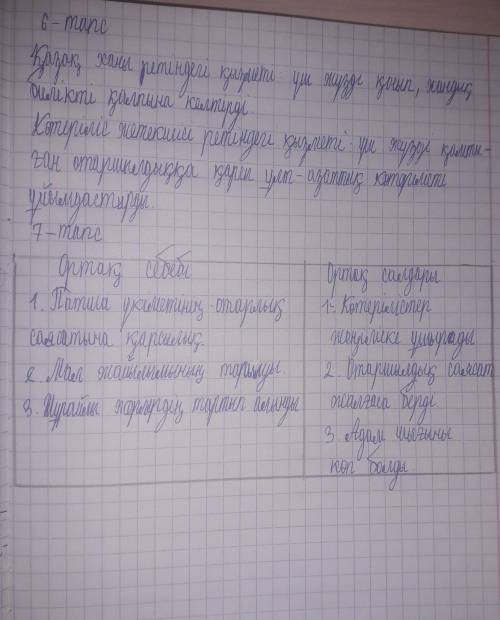 6-тапс
Қазақ ханы ретіндегі қызметі: үш жүзді қосып, хандық
билікті қалпына келтірді
Көтеріліс жетекшісі ретіндегі қызметі: үш жүзді қамты-
ған отаршылдыққа қарсы ұлт-азаттық көтерілісті
ұйымдастырды.
7-тапс
Ортақ себебі
1. Патша үкіметінің отарлық
саясатына қарсылық.
2. Мал жайылымының тарылуы.
3. Шұрайлы жерлердің тартып алынды
Ортақ салдары
1- Көтерілістер
жеңіліске ұшырады
2. Отаршылдық саясат
жалғаса берді.
3. Адам шығыны
көп болды